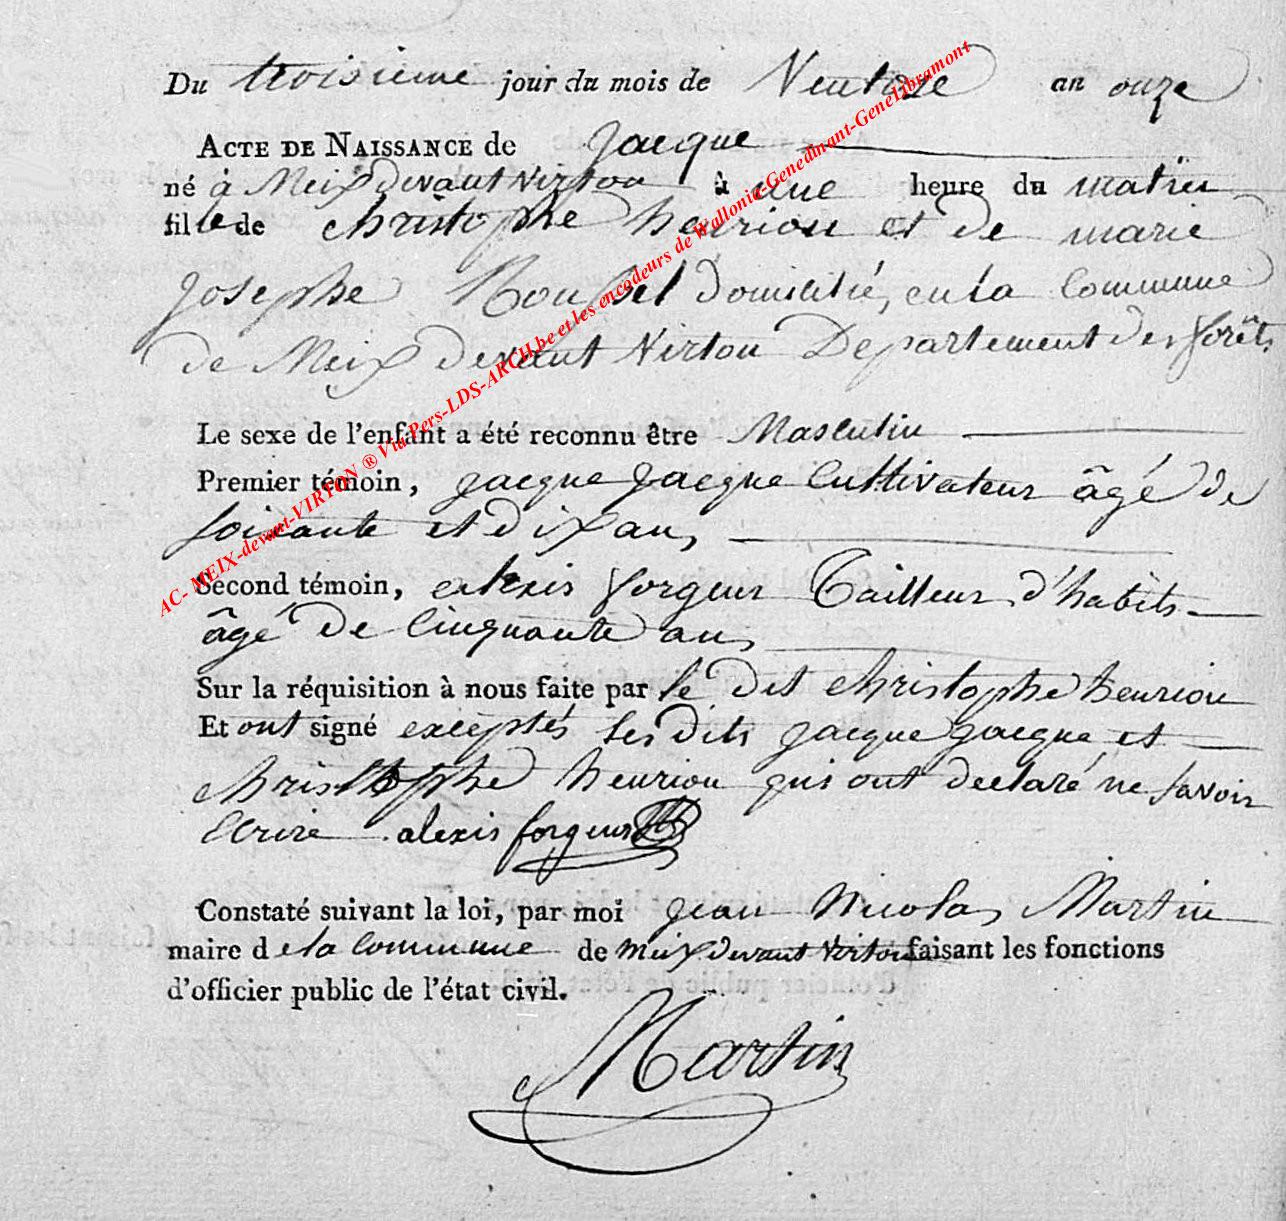 Du troisieme jour du mois de Ventose an onze
ACTE DE NAISSANCE de Jacque
né à Meix devant virton à une heure du matin
fil le de christophe henrion et de marie
Josephe Roussel domicilié, en la Commune
de Meix devant Virton Departement des forêts
Le sexe de l'enfant a été reconnu être Masculin
Premier témoin, jacque jacque Cultivateur âgé de
soixante et dix ans
Second témoin, alexis forgeur Tailleur d'habits
âgé de Cinquante ans
Sur la réquisition à nous faite par le dit christophe henrion
Et ont signé exceptés les dits jacque jacque et
christophe henrion qui ont declaré ne savoir
Ecrire alexis forgeur
Constaté suivant la loi, par moi jean Nicolas Martin
maire de la Commune de Meix devant Virton faisant les fonctions
d'officier public de l'état civil.
Martin
AC- MEIX-devant-VIRTON ® Via Pers-LDS-ARCH.be et les encodeurs de Wallonie-Genedinant-GeneLibramont